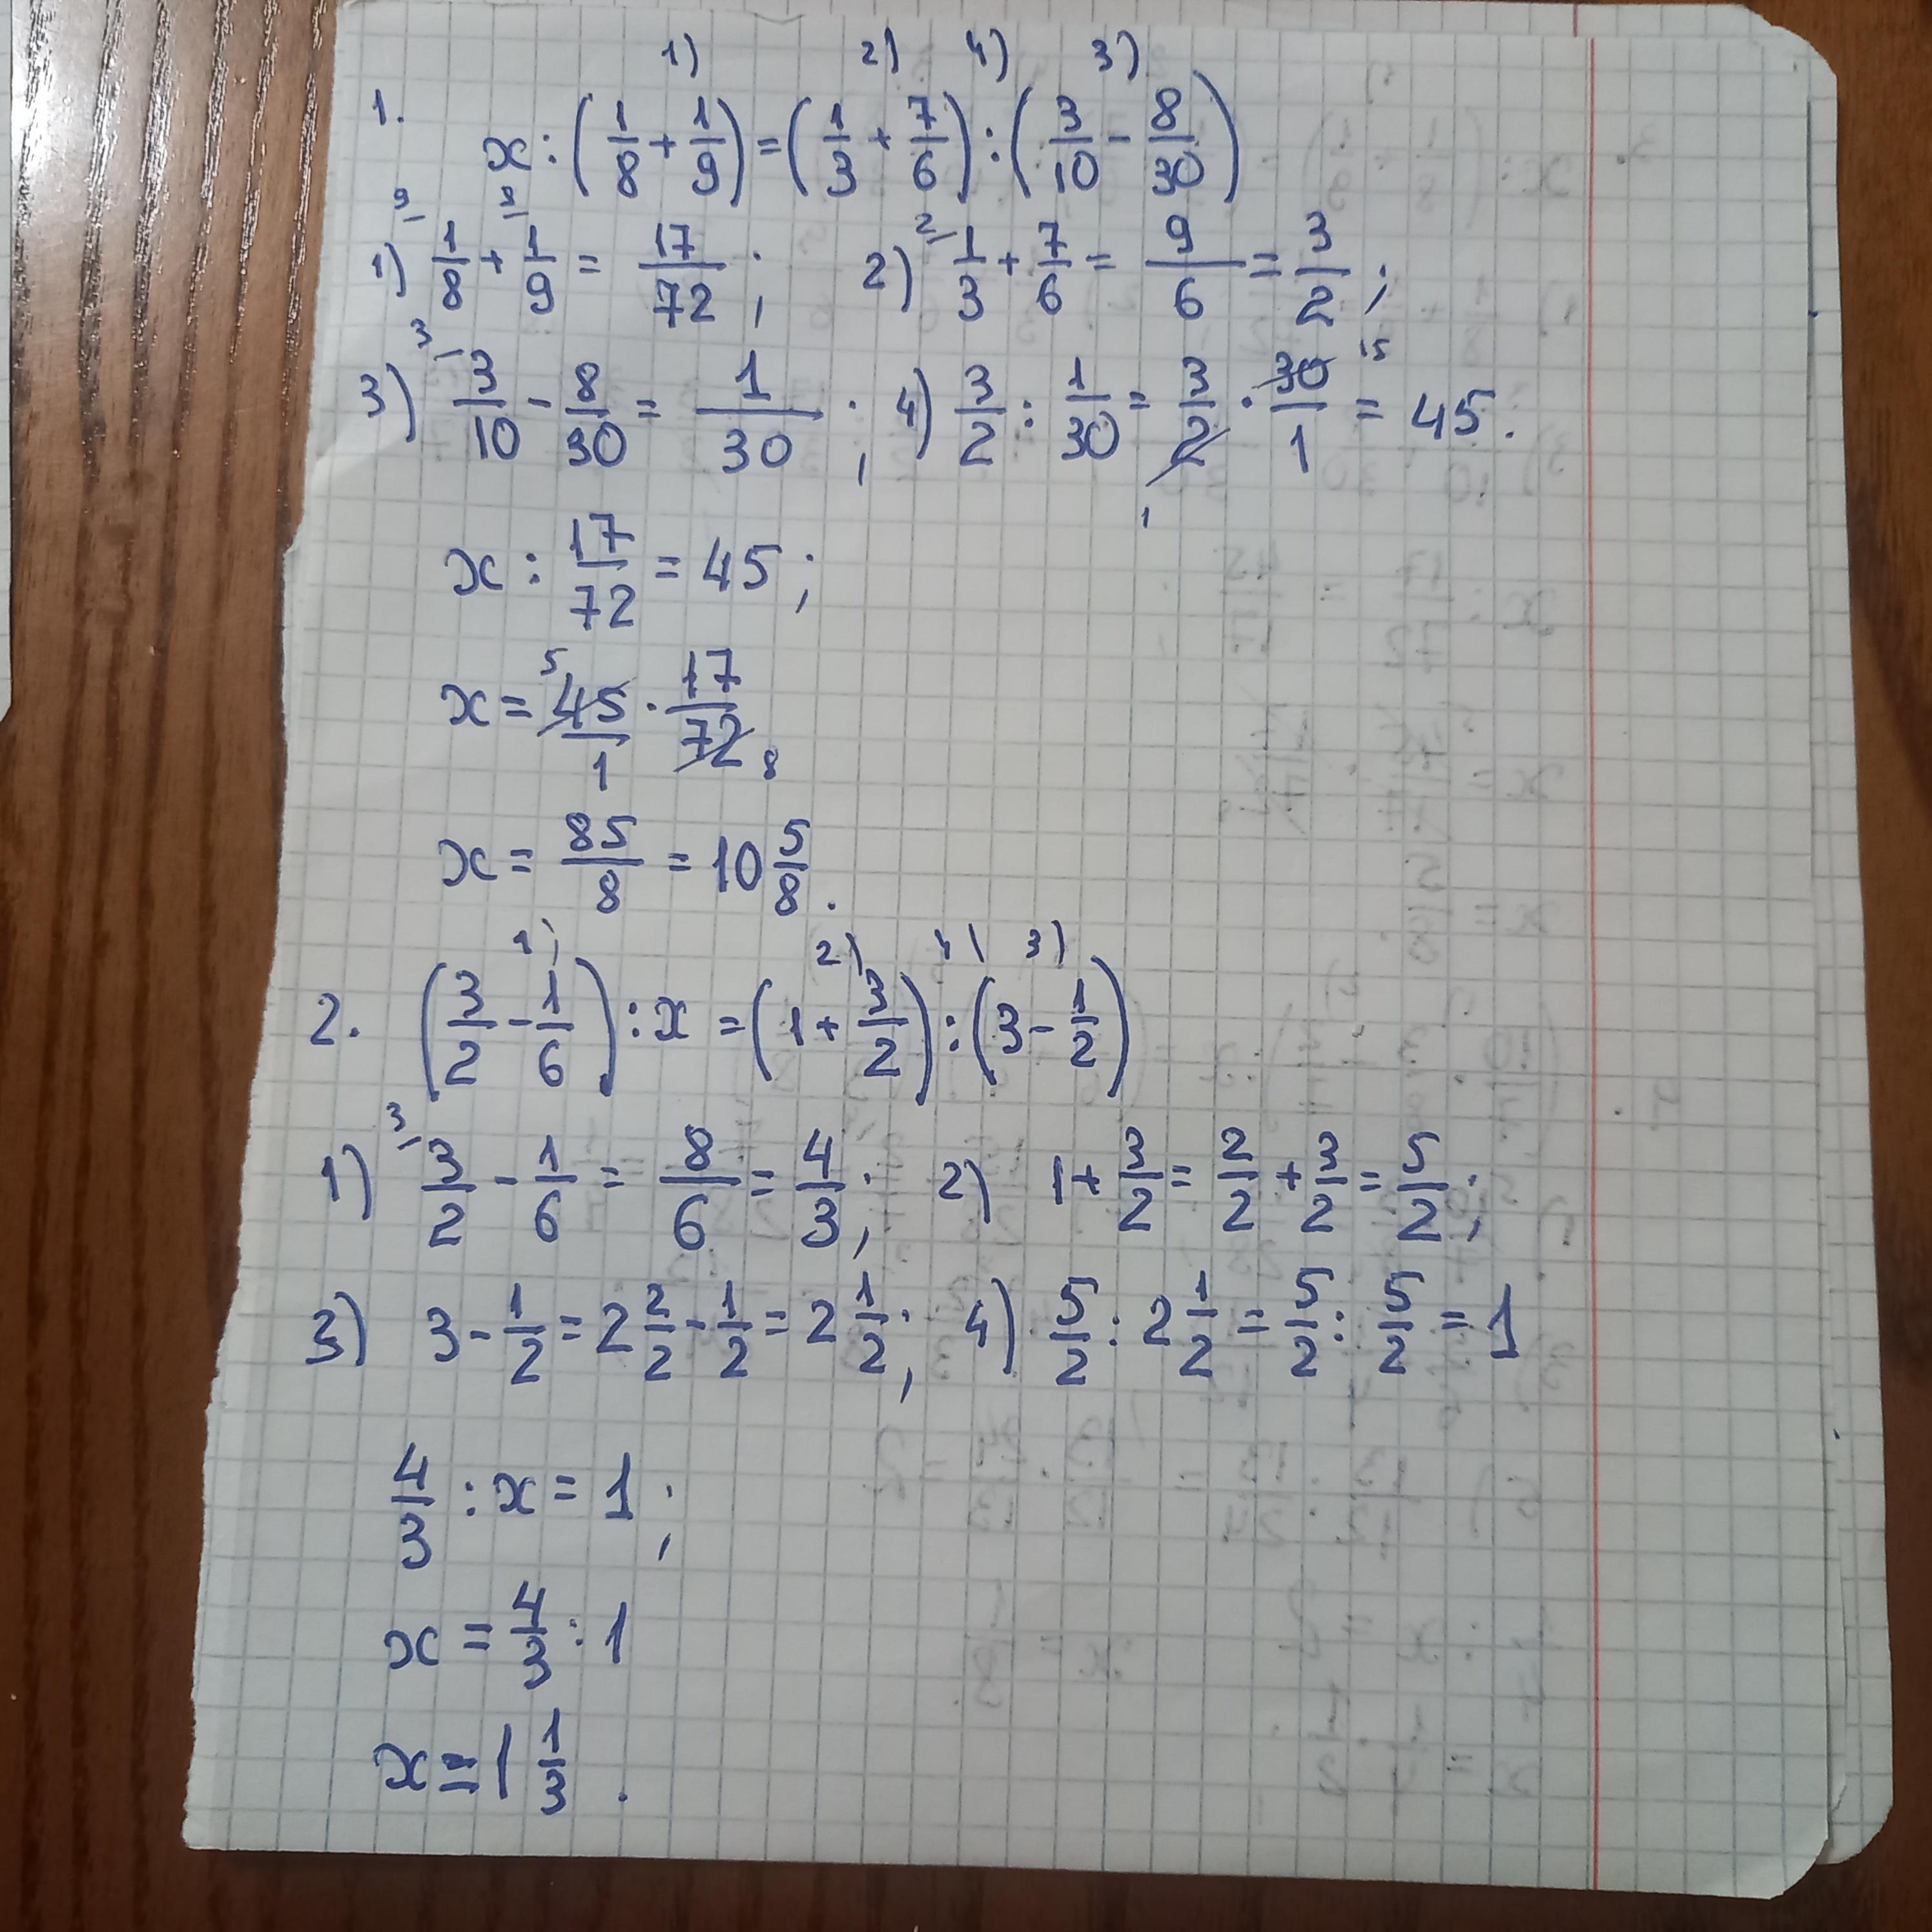 1) 2) 4) 3)
1. x : (1/8 + 1/9) = (1/3 + 7/6) : (3/10 - 8/30)
1) 1/8 + 1/9 = 17/72; 2) 1/3 + 7/6 = 9/6 = 3/2;
3) 3/10 - 8/30 = 1/30; 4) 3/2 : 1/30 = 3/2 · 30/1 = 45.
x : 17/72 = 45;
x = 45/1 · 17/72
x = 85/8 = 10 5/8.
1) 2) 4) 3)
2. (3/2 - 1/6) : x = (1 + 3/2) : (3 - 1/2)
1) 3/2 - 1/6 = 8/6 = 4/3; 2) 1 + 3/2 = 2/2 + 3/2 = 5/2;
3) 3 - 1/2 = 2 2/2 - 1/2 = 2 1/2; 4) 5/2 : 2 1/2 = 5/2 : 5/2 = 1
4/3 : x = 1;
x = 4/3 : 1
x = 1 1/3.